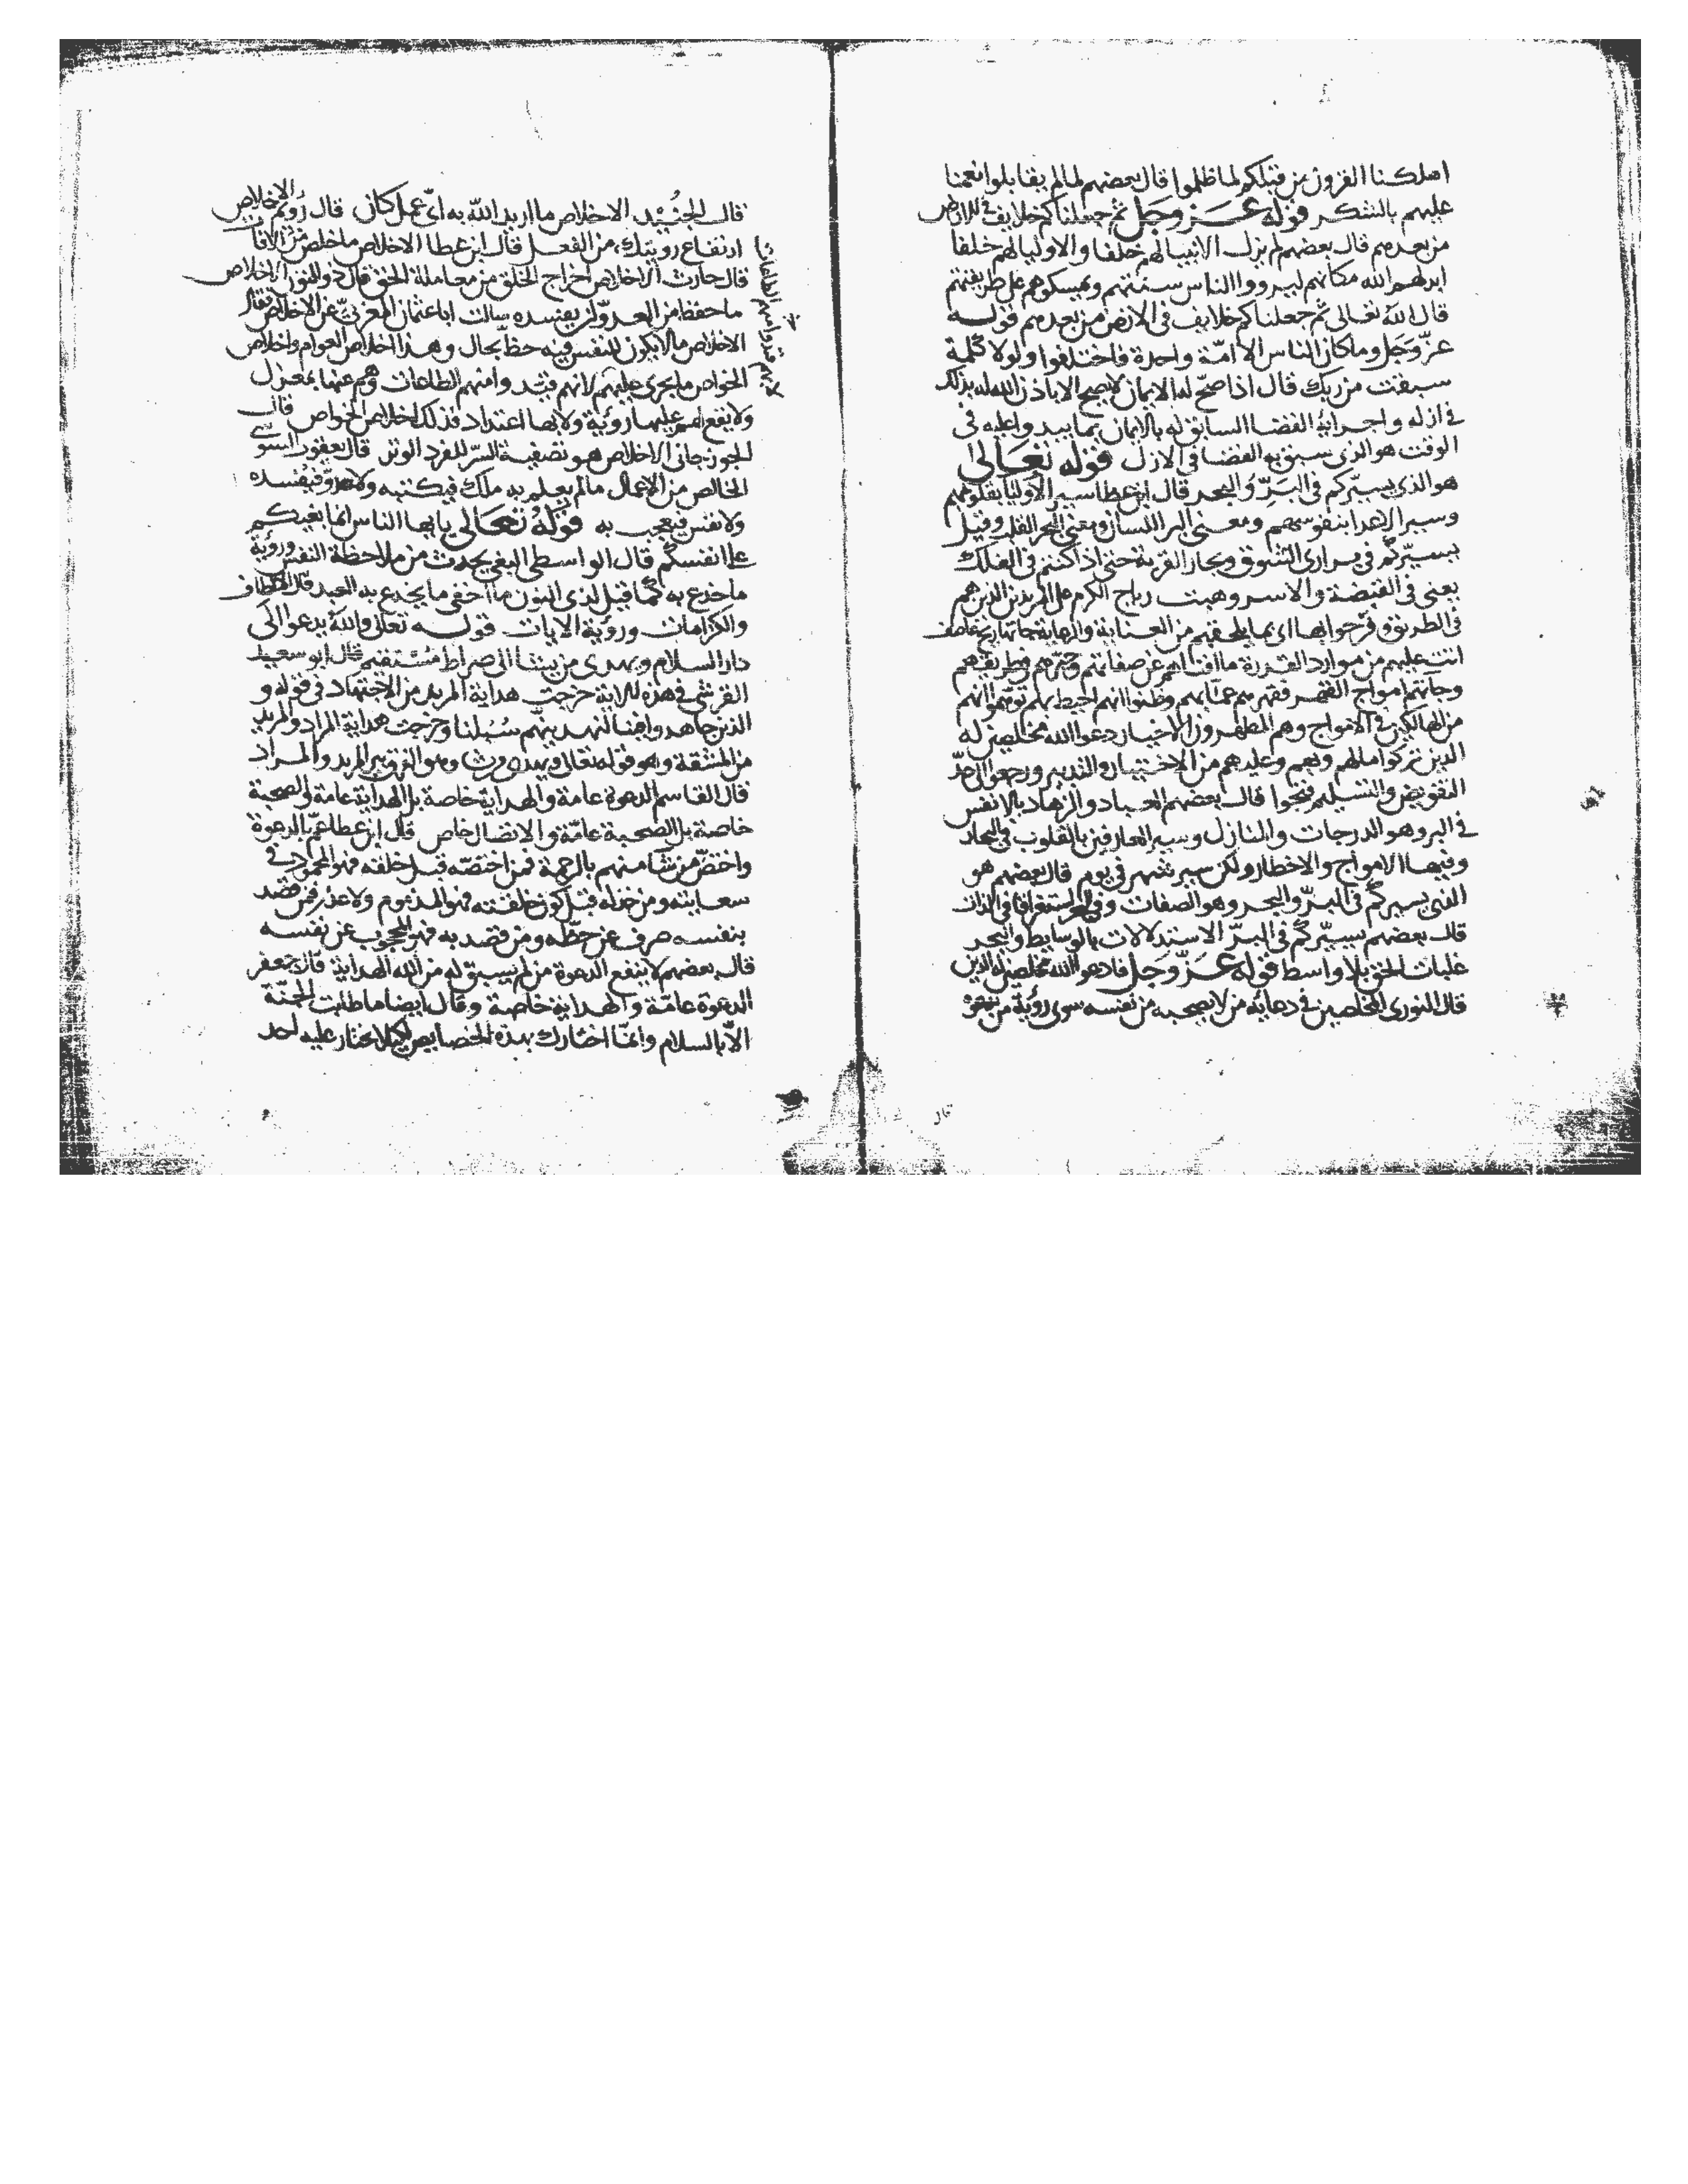 اهلكنا القرون من قبلكم لما ظلموا قال بعضهم لما لم يقابلوا نعمنا
عليهم بالشكر قوله عز وجل ثم جعلناكم خلايف في الارض
من بعدهم قال بعضهم لم يزل الانبيا لهم خلفا والاوليا لهم خلفا
ابدلهم الله مكانهم ليروا الناس سنتهم ويمسكوهم على طريقتهم
قال الله تعالى ثم جعلناكم خلايف في الارض من بعدهم قوله
عز وجل وما كان الناس الا امة واحدة فاختلفوا ولولا كلمة
سبقت من ربك قال اذا صح له الايمان لا يصح الا باذن الله له بذلك
في ازله واجراية القضا السابق له بالايمان بما يبدوا عليه في
الوقت هو الذي سبق به القضا في الازل قوله تعالى
هو الذي يسيركم في البر والبحر قال ابن عطا سير الاوليا بقلوبهم
وسير الاعدا بنفوسهم ومعنى البر اللسان ومعنى البحر القلب وقيل
يسيركم في براري الشوق وبحار القربة حتى اذا كنتم في الفلك
يعني في القبضة والاسر وهبت رياح الكرم على المريدين الذين هم
في الطريق وفرحوا بها اي بما يلحقهم من العناية والرعاية جاتها ريح عاصف
اتت عليهم من موارد القدرة ما افناهم عن صفاتهم وحيرهم في طريقهم
وجاتهم امواج القهر فقهرهم عما بهم وظنوا انهم احيط بهم توهموا انهم
من الهالكين في الامواج وهم المطهرون الاخيار دعوا الله مخلصين له
الدين تركوا ما لهم وبهم وعليهم من الاختيار والتدبير ورجعوا الى حد
التفويض والتسليم فنجوا قال بعضهم العباد والزهاد بالانفس
في البر وهو الدرجات والمنازل وسير العارفين بالقلوب في البحار
وفيها الامواج والاخطار ولكن سير شهر في يوم قال بعضهم هو
الذي يسيركم في البر والبحر وهو الصفات وفي البحر استغراقا في الذات
قال بعضهم يسيركم في البر الاستدلالات بالوسايط والبحر
غلبات الحق بلا واسط قوله عز وجل فادعوا الله مخلصين له الدين
قال النوري المخلصين في دعايه من لا يصحبه من نفسه سوى رؤية من يدعوه
قال
قال الجنيد الاخلاص ما اريد الله به اي عمل كان قال رويم الاخلاص
ارتفاع رويتك من الفعل قال ابن عطا الاخلاص ما خلص من الافات
قال حارث الاخلاص اخراج الخلق من معاملة الحق قال ذو النون الاخلاص
ما حفظ من العدو ان يفسده سالت ابا عثمان المغربي عن الاخلاص فقال
الاخلاص ما لا يكون للنفس فيه حظ بحال وهذا اخلاص العوام واخلاص
الخواص ما يجري عليهم لا بهم فتبدوا منهم الطاعات وهم عنها بمعزل
ولا يقع لهم عليها رؤية ولا بها اعتداد فذلك اخلاص الخواص قال
الجوزجاني الاخلاص هو تصفية السر للفرد الوتر قال يعقوب السوسي
الخالص من الاعمال ما لم يعلم به ملك فيكتبه ولا عدو فيفسده
ولا نفس فيعجب به قوله تعالى يايها الناس انما بغيكم
على انفسكم قال الواسطي البغي يحدث من ملاحظة النفس ورؤية
ما خدع به كما قيل لذي النون ما اخفى ما يخدع به العبد قال الالطاف
والكرامات ورؤية الايات قوله تعالى والله يدعوا الى
دار السلام ويهدي من يشا الى صراط مستقيم قال ابو سعيد
القرشي في هذه الاية خرجت هداية المريد من الاجتهاد في قوله و
الذين جاهدوا فينا لنهدينهم سبلنا وخرجت هداية المراد والمريد
من المشقة وهو قوله تعالى ويهدي من يشا وهو الفرق بين المريد والمراد
قال القاسم الدعوة عامة والهداية خاصة بل الهداية عامة والصحبة
خاصة بل الصحبة عامة والاتصال خاص قال ابن عطا عم بالدعوة
واختص من شا منهم بالرحمة فمن اختصه قبل خلقه فهو المحمود في
سعايته ومن خذله قبل كون خلقته فهو المذموم ولا عذر فمن قصد
بنفسه صرف عن حظه ومن قصد به فهو المحجوب عن نفسه
قال بعضهم لا ينفع الدعوة من لم يسبق له من الله الهداية قال جعفر
الدعوة عامة والهداية خاصة وقال ايضا ما طلبت الجنة
الا بالسلام وانما اختارك بهذه الخصايص لكيلا تختار عليه احد